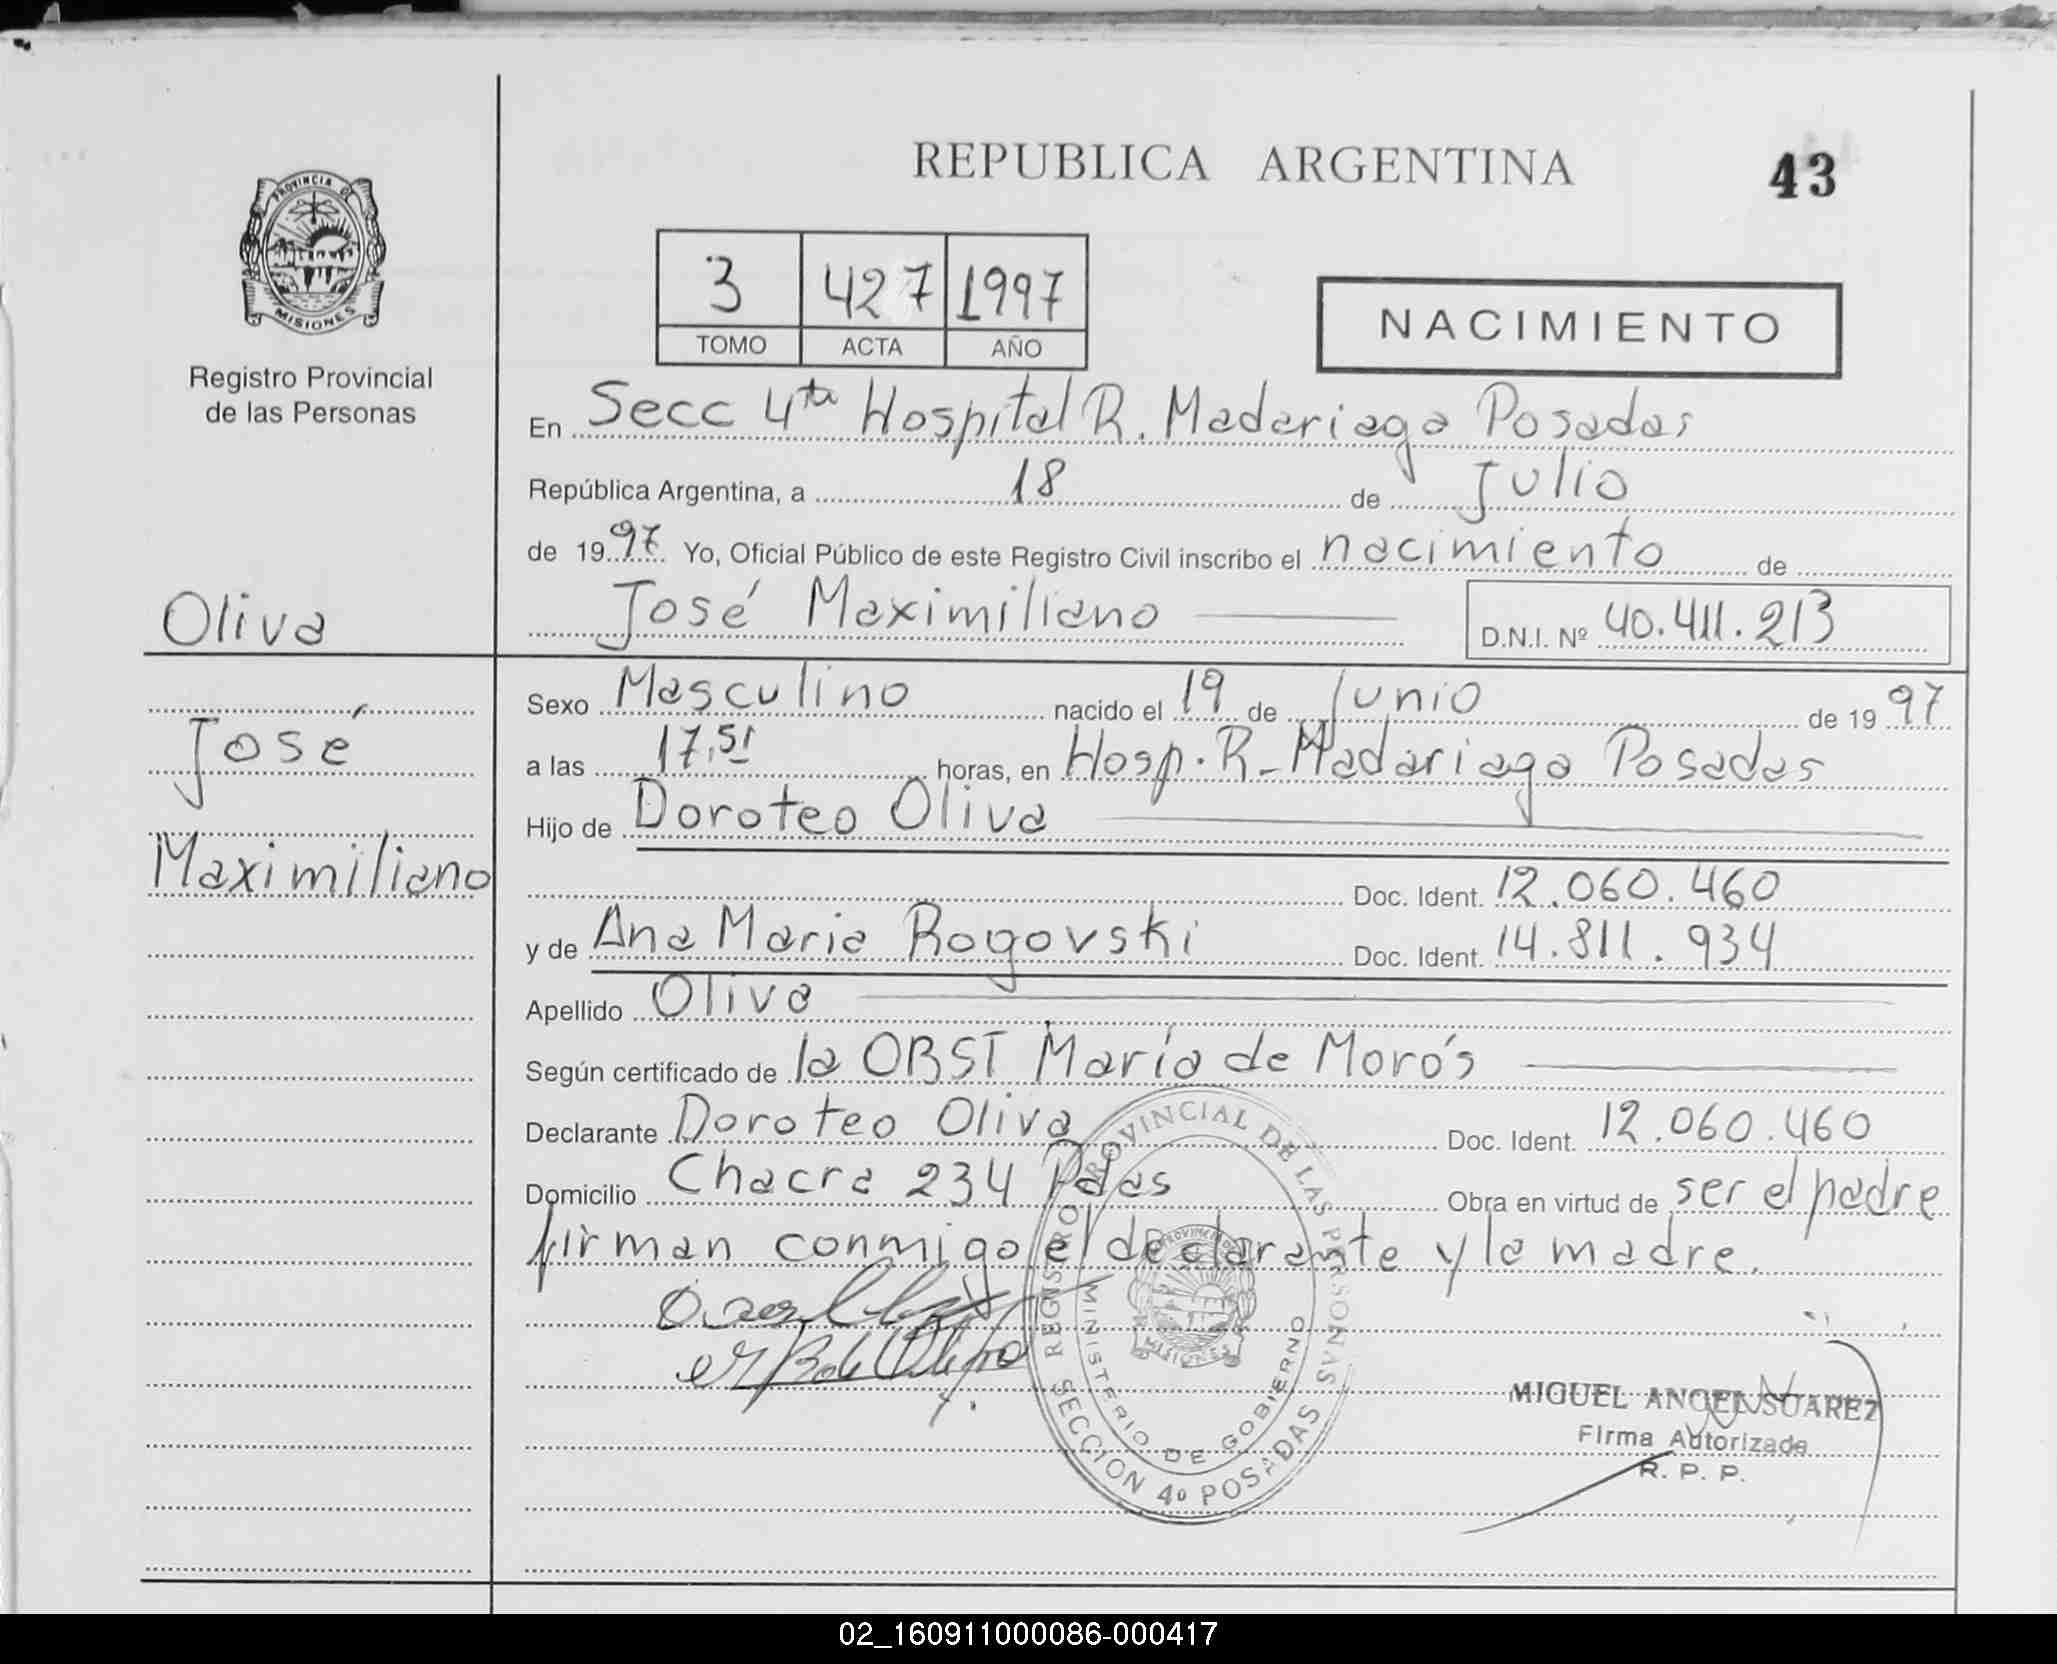 REPUBLICA ARGENTINA
43
PROVINCIA DE
MISIONES
Registro Provincial
de las Personas
3 427 1997
TOMO ACTA AÑO
NACIMIENTO
En Secc 4ta Hospital R. Madariaga Posadas
República Argentina, a 18 de Julio
de 1997 Yo, Oficial Público de este Registro Civil inscribo el nacimiento de
José Maximiliano D.N.I. Nº 40.411.213
Oliva
José
Maximiliano
Sexo Masculino nacido el 19 de Junio de 1997
a las 17,51 horas, en Hosp. R. Madariaga Posadas
Hijo de Doroteo Oliva
Doc. Ident. 12.060.460
y de Ana Maria Rogovski Doc. Ident. 14.811.934
Apellido Oliva
Según certificado de la OBST María de Morós
Declarante Doroteo Oliva Doc. Ident. 12.060.460
Domicilio Chacra 234 Pdas Obra en virtud de ser el padre
firman conmigo el declarante y la madre.
REGISTRO PROVINCIAL DE LAS PERSONAS
MINISTERIO DE GOBIERNO
PROVINCIA DE
MISIONES
SECCION 4º POSADAS
MIGUEL ANGEL SUAREZ
Firma Autorizada
R. P. P.
02_160911000086-000417